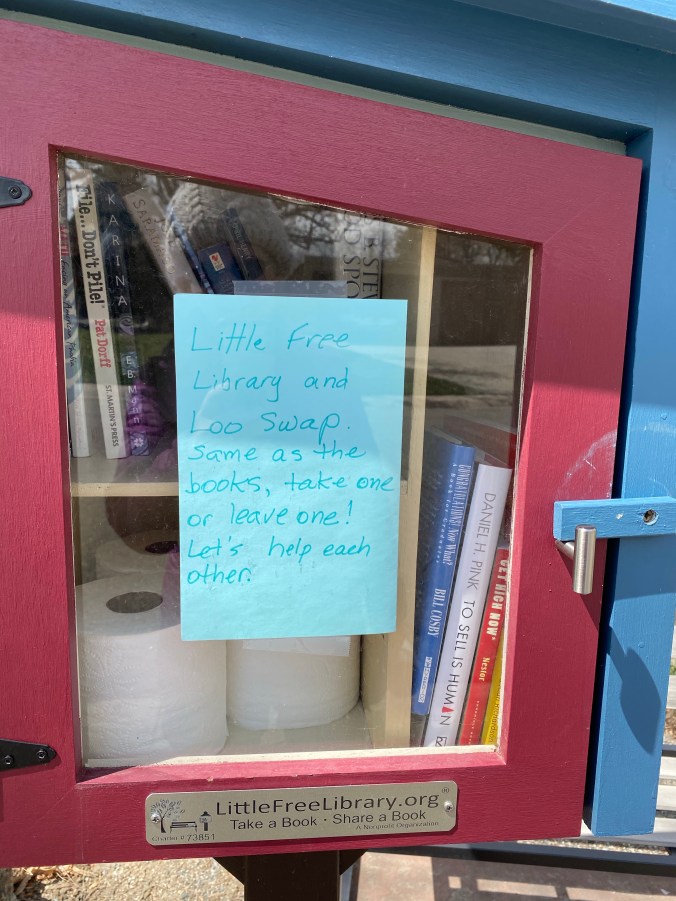 File... Don't Pile!
Pat Dorff
ST. MARTIN'S PRESS
KARINA
Little Free
Library and
Loo Swap.
Same as the
books, take one
or leave one!
Let's help each
other.
CONGRATULATIONS! NOW What?
A Book for Graduates
BILL COSBY
DANIEL H. PINK TO SELL IS HUMAN
GET RICH NOW
LITTLEFREELIBRARY.ORG®
Take a Book · Share a Book
A Nonprofit Organization
Charter # 73851